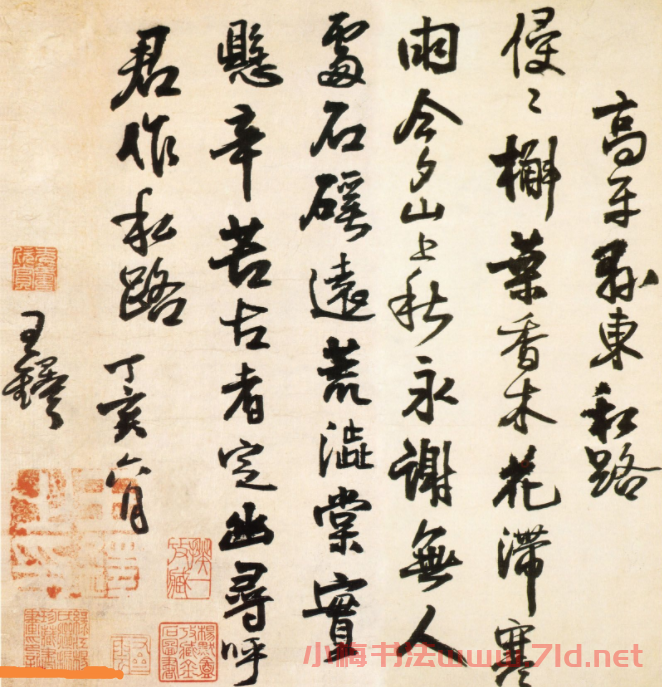 高平縣東私路
侵〻槲葉香木花滯寒
雨今夕山上秋永謝無人
處石磎遠荒澁棠實
懸辛苦古者定幽尋呼
君作私路
丁亥六月
王鐸
小梅书法www.7ld.net